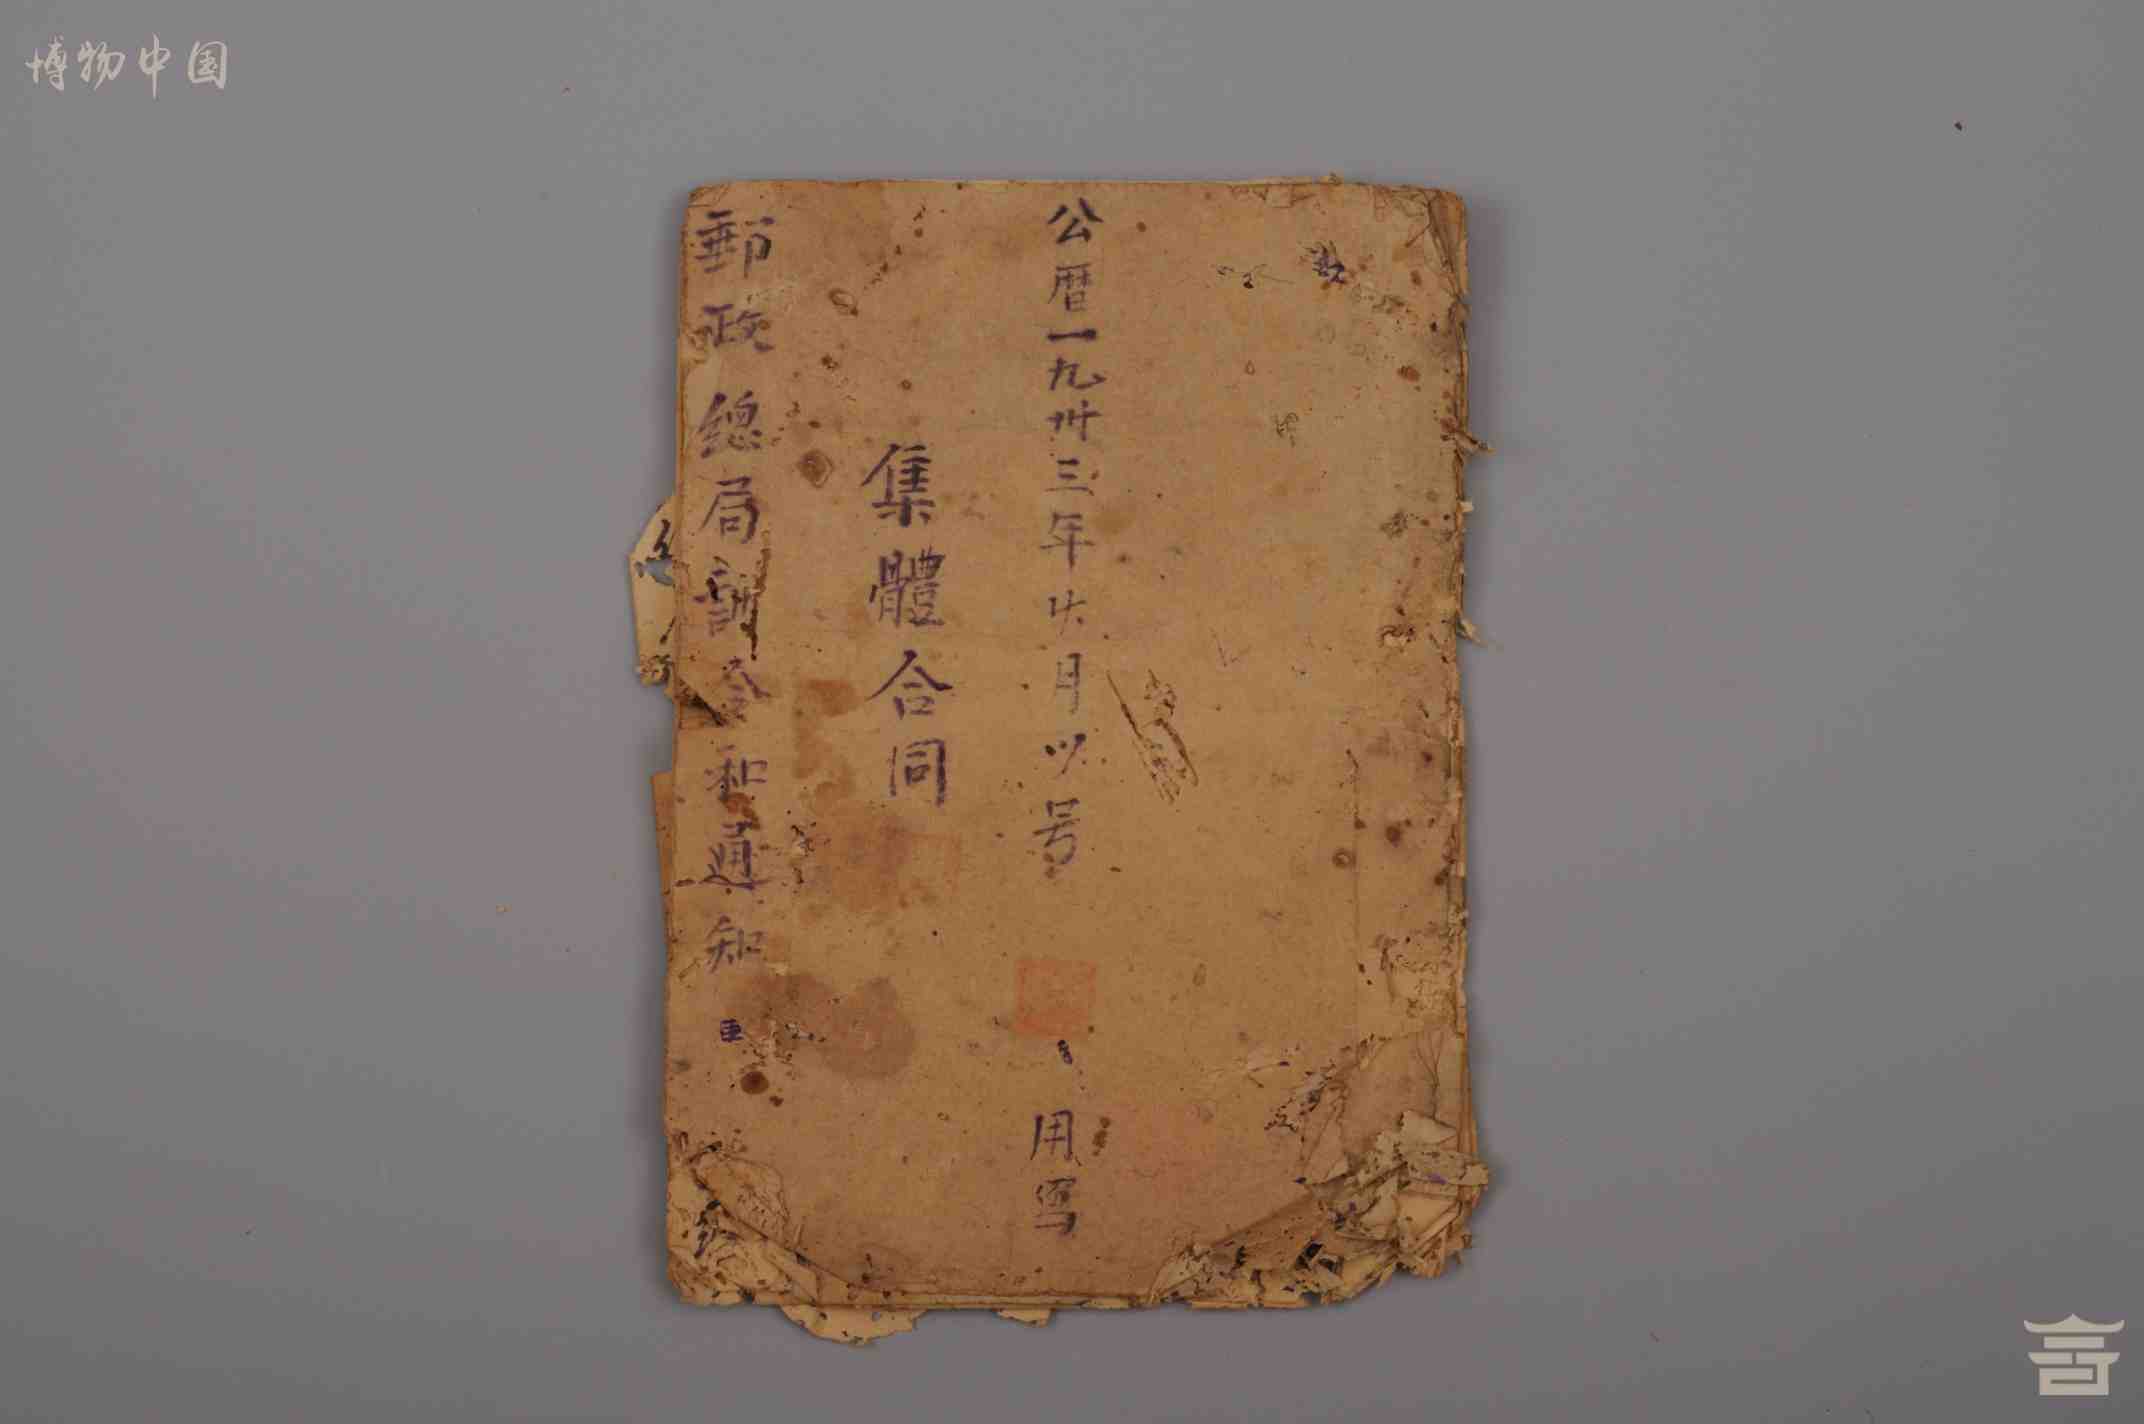 博物中国
公曆一九卅三年六月以号
用寫
集體合同
郵政總局訓令和通知